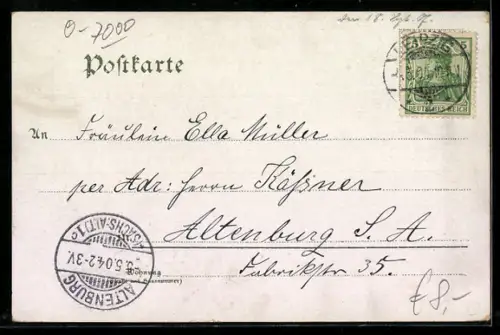 0-7000
Postkarte
LEIPZIG
5
DEUTSCHES REICH
An Fräulein Ella Müller
per Adr: Herrn Käßner
Altenburg S. A.
Fabrikstr 35.
Wohnung
ALTENBURG (SACHS.-ALT.) 1
.5.04.2-3V.
£ 8,-